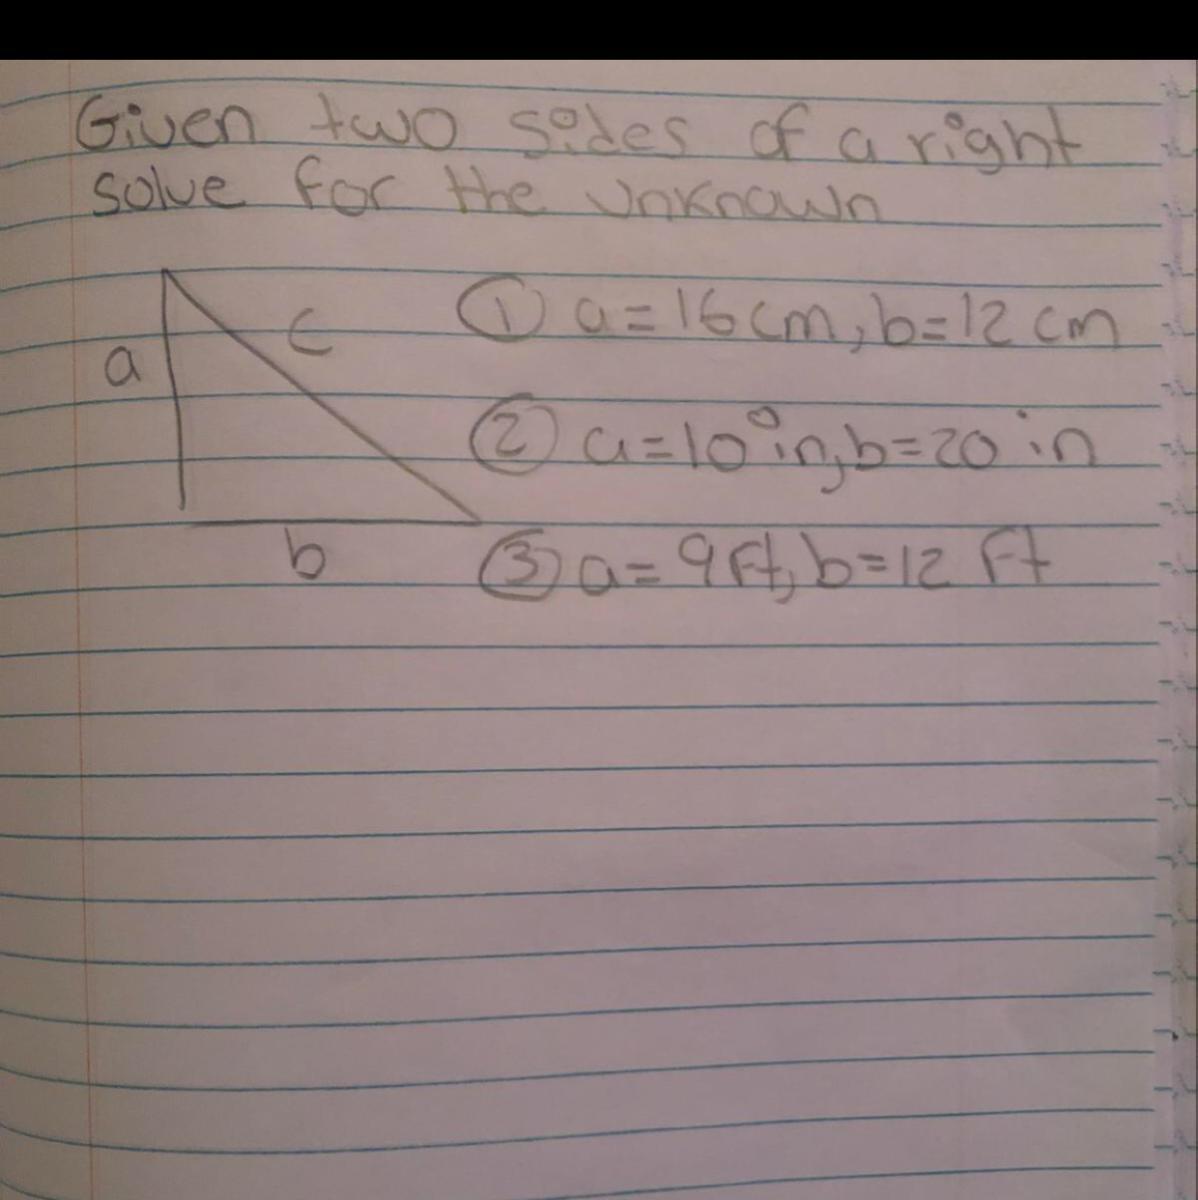 Given two sides of a right
solve for the unknown
a
c
b
① a=16cm, b=12 cm
② a=10 in, b=20 in
③ a= 9 Ft, b=12 Ft